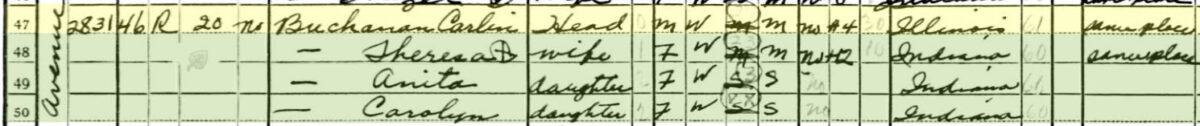 47 Avenue 2831 46 R 20 no Buchanan Carlin Head M W M M no H4 30 Illinois 61 same place
48 — Theresa wife F W M M no H2 Indiana 60 same place
49 — Anita daughter F W S S no Indiana 61
50 — Carolyn daughter F W S S no Indiana 60